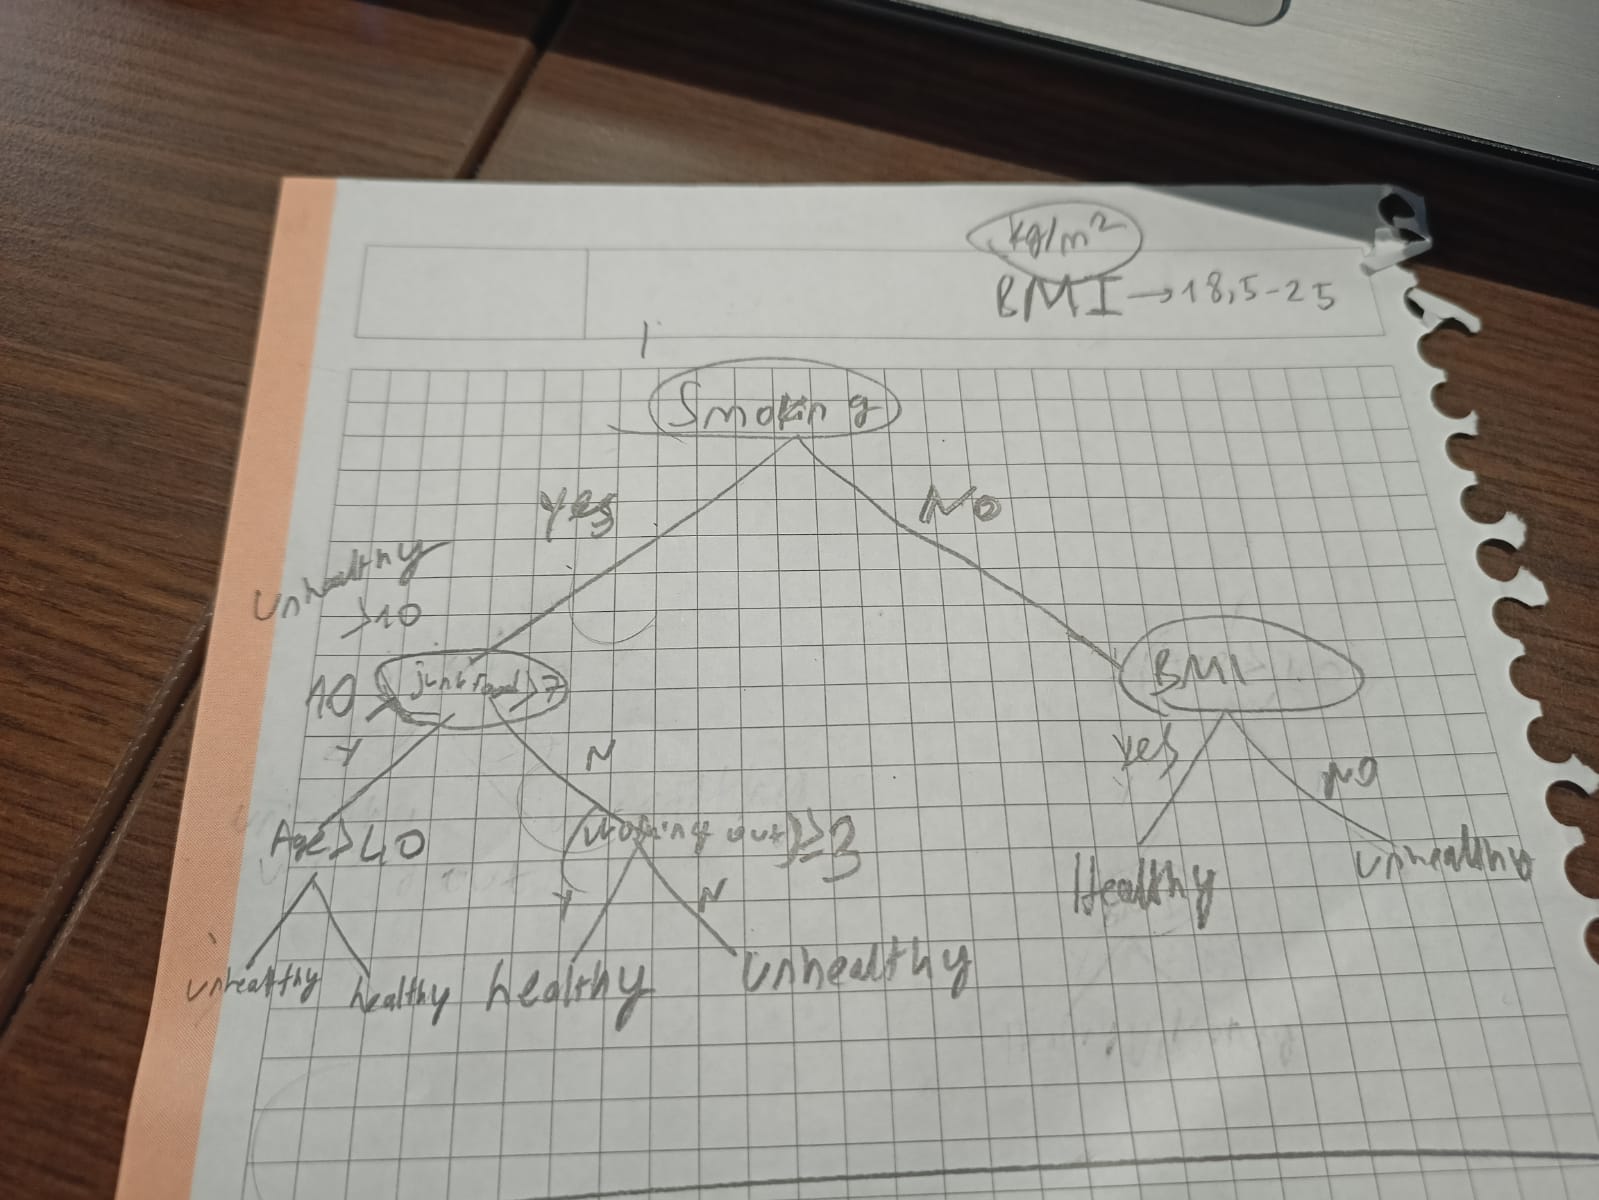 kg/m²
BMI → 18,5-25
Smoking
Yes
No
Unhealthy
>10
10
junk food > 7
BMI
Y
N
Yes
NO
Age > 40
(Working out) ≥ 3
Healthy
Unhealthy
Y
N
Unhealthy
healthy
healthy
Unhealthy